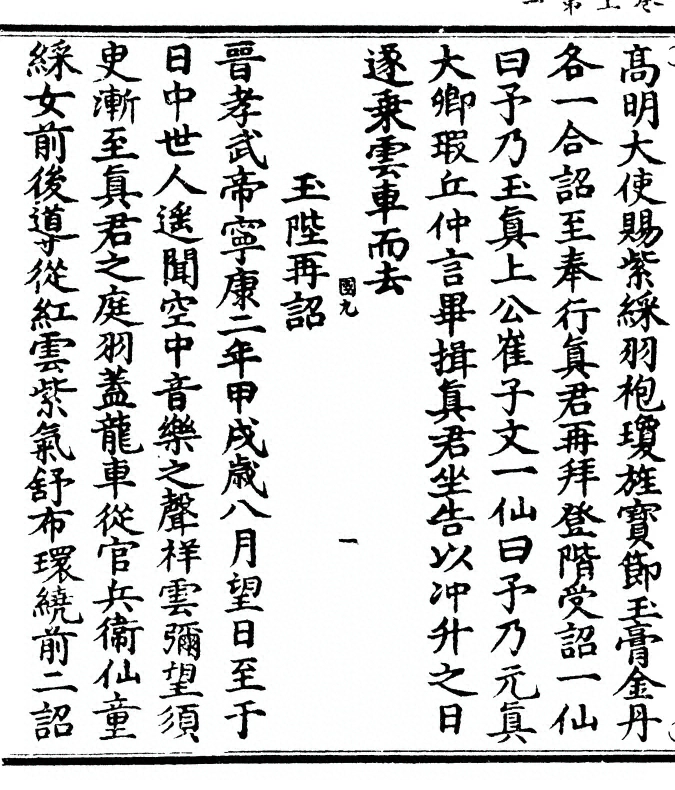 高明大使賜紫綵羽袍瓊旌寶節玉膏金丹
各一合詔至奉行眞君再拜登階受詔一仙
曰予乃玉眞上公崔子文一仙曰予乃元眞
大卿瑕丘仲言畢揖眞君坐告以冲升之日
遂乗雲車而去
國九
一
玉陛再詔
晉孝武帝寧康二年甲戌歳八月望日至于
日中世人遙聞空中音樂之聲祥雲彌望須
㬰漸至眞君之庭羽蓋龍車從官兵衞仙童
綵女前後導從紅雲紫氣舒布環繞前二詔